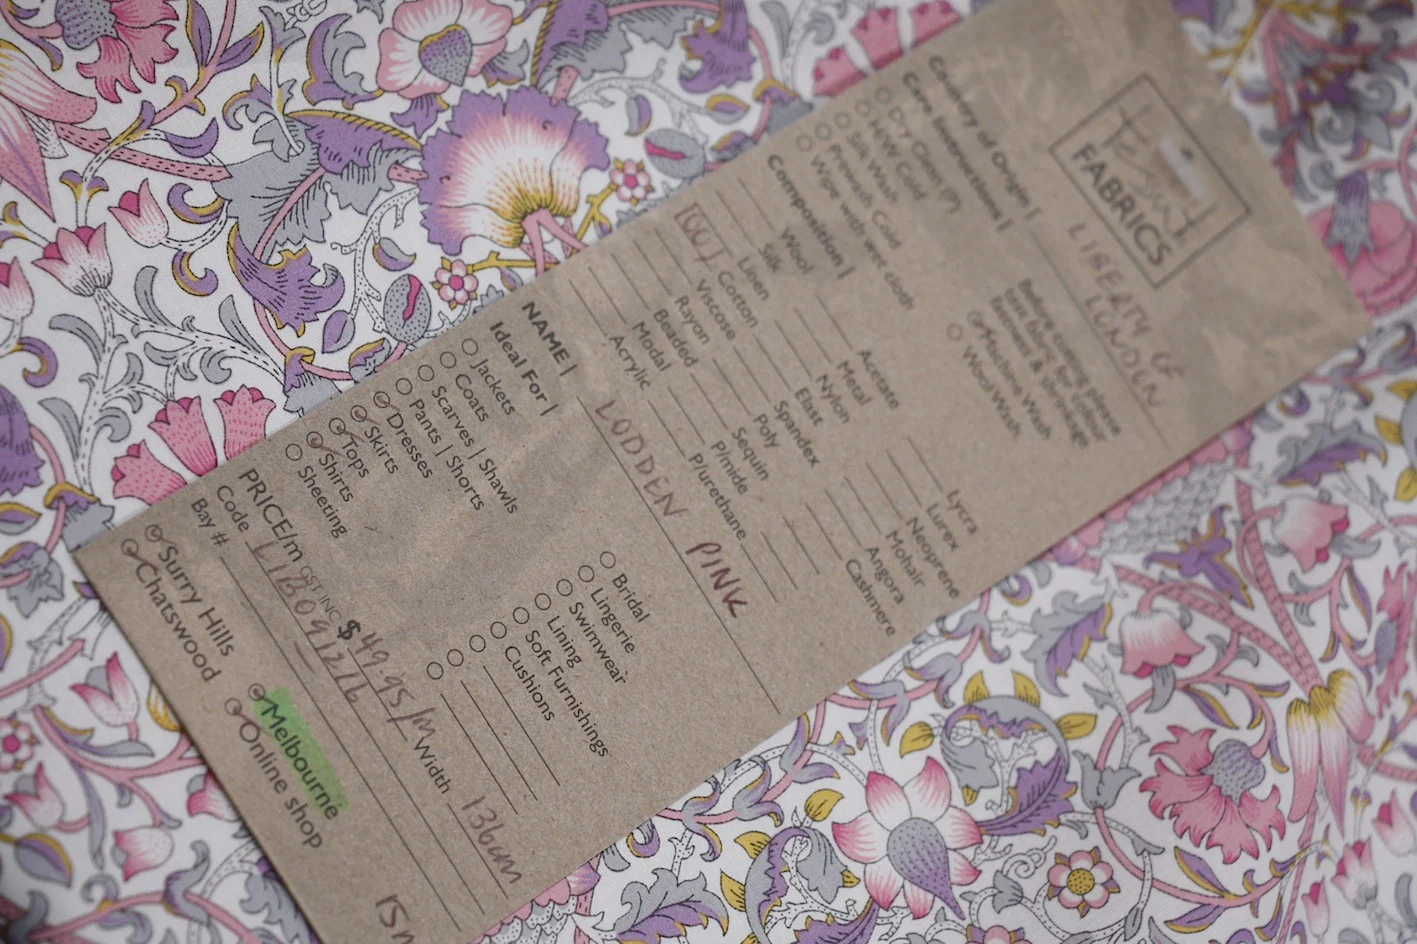 FABRICS
LIBERTY OF
LONDEN
Country of Origin |
Care Instructions |
Dry Clean (P)
H/W Cold
Silk Wash
Prewash Cold
Wipe with wet cloth
Before cutting please
test fabric for colour
fastness & shrinkage
Machine Wash
Wool Wash
Composition |
Wool
Silk
Linen
100% Cotton
Viscose
Rayon
Beaded
Modal
Acrylic
Acetate
Metal
Nylon
East
Spandex
Poly
Sequin
Pimide
Plurethane
Lycra
Lurex
Neoprene
Mohair
Angora
Cashmere
NAME | LODDEN PINK
Ideal For |
Jackets
Coats
Scarves | Shawls
Pants | Shorts
Dresses
Skirts
Tops
Shirts
Sheeting
Bridal
Lingerie
Swimwear
Lining
Soft Furnishings
Cushions
PRICE/m GST INC $ 49.95/m Width 136cm
Code LIB091216
Bay #
Surry Hills
Chatswood
Melbourne
Online shop